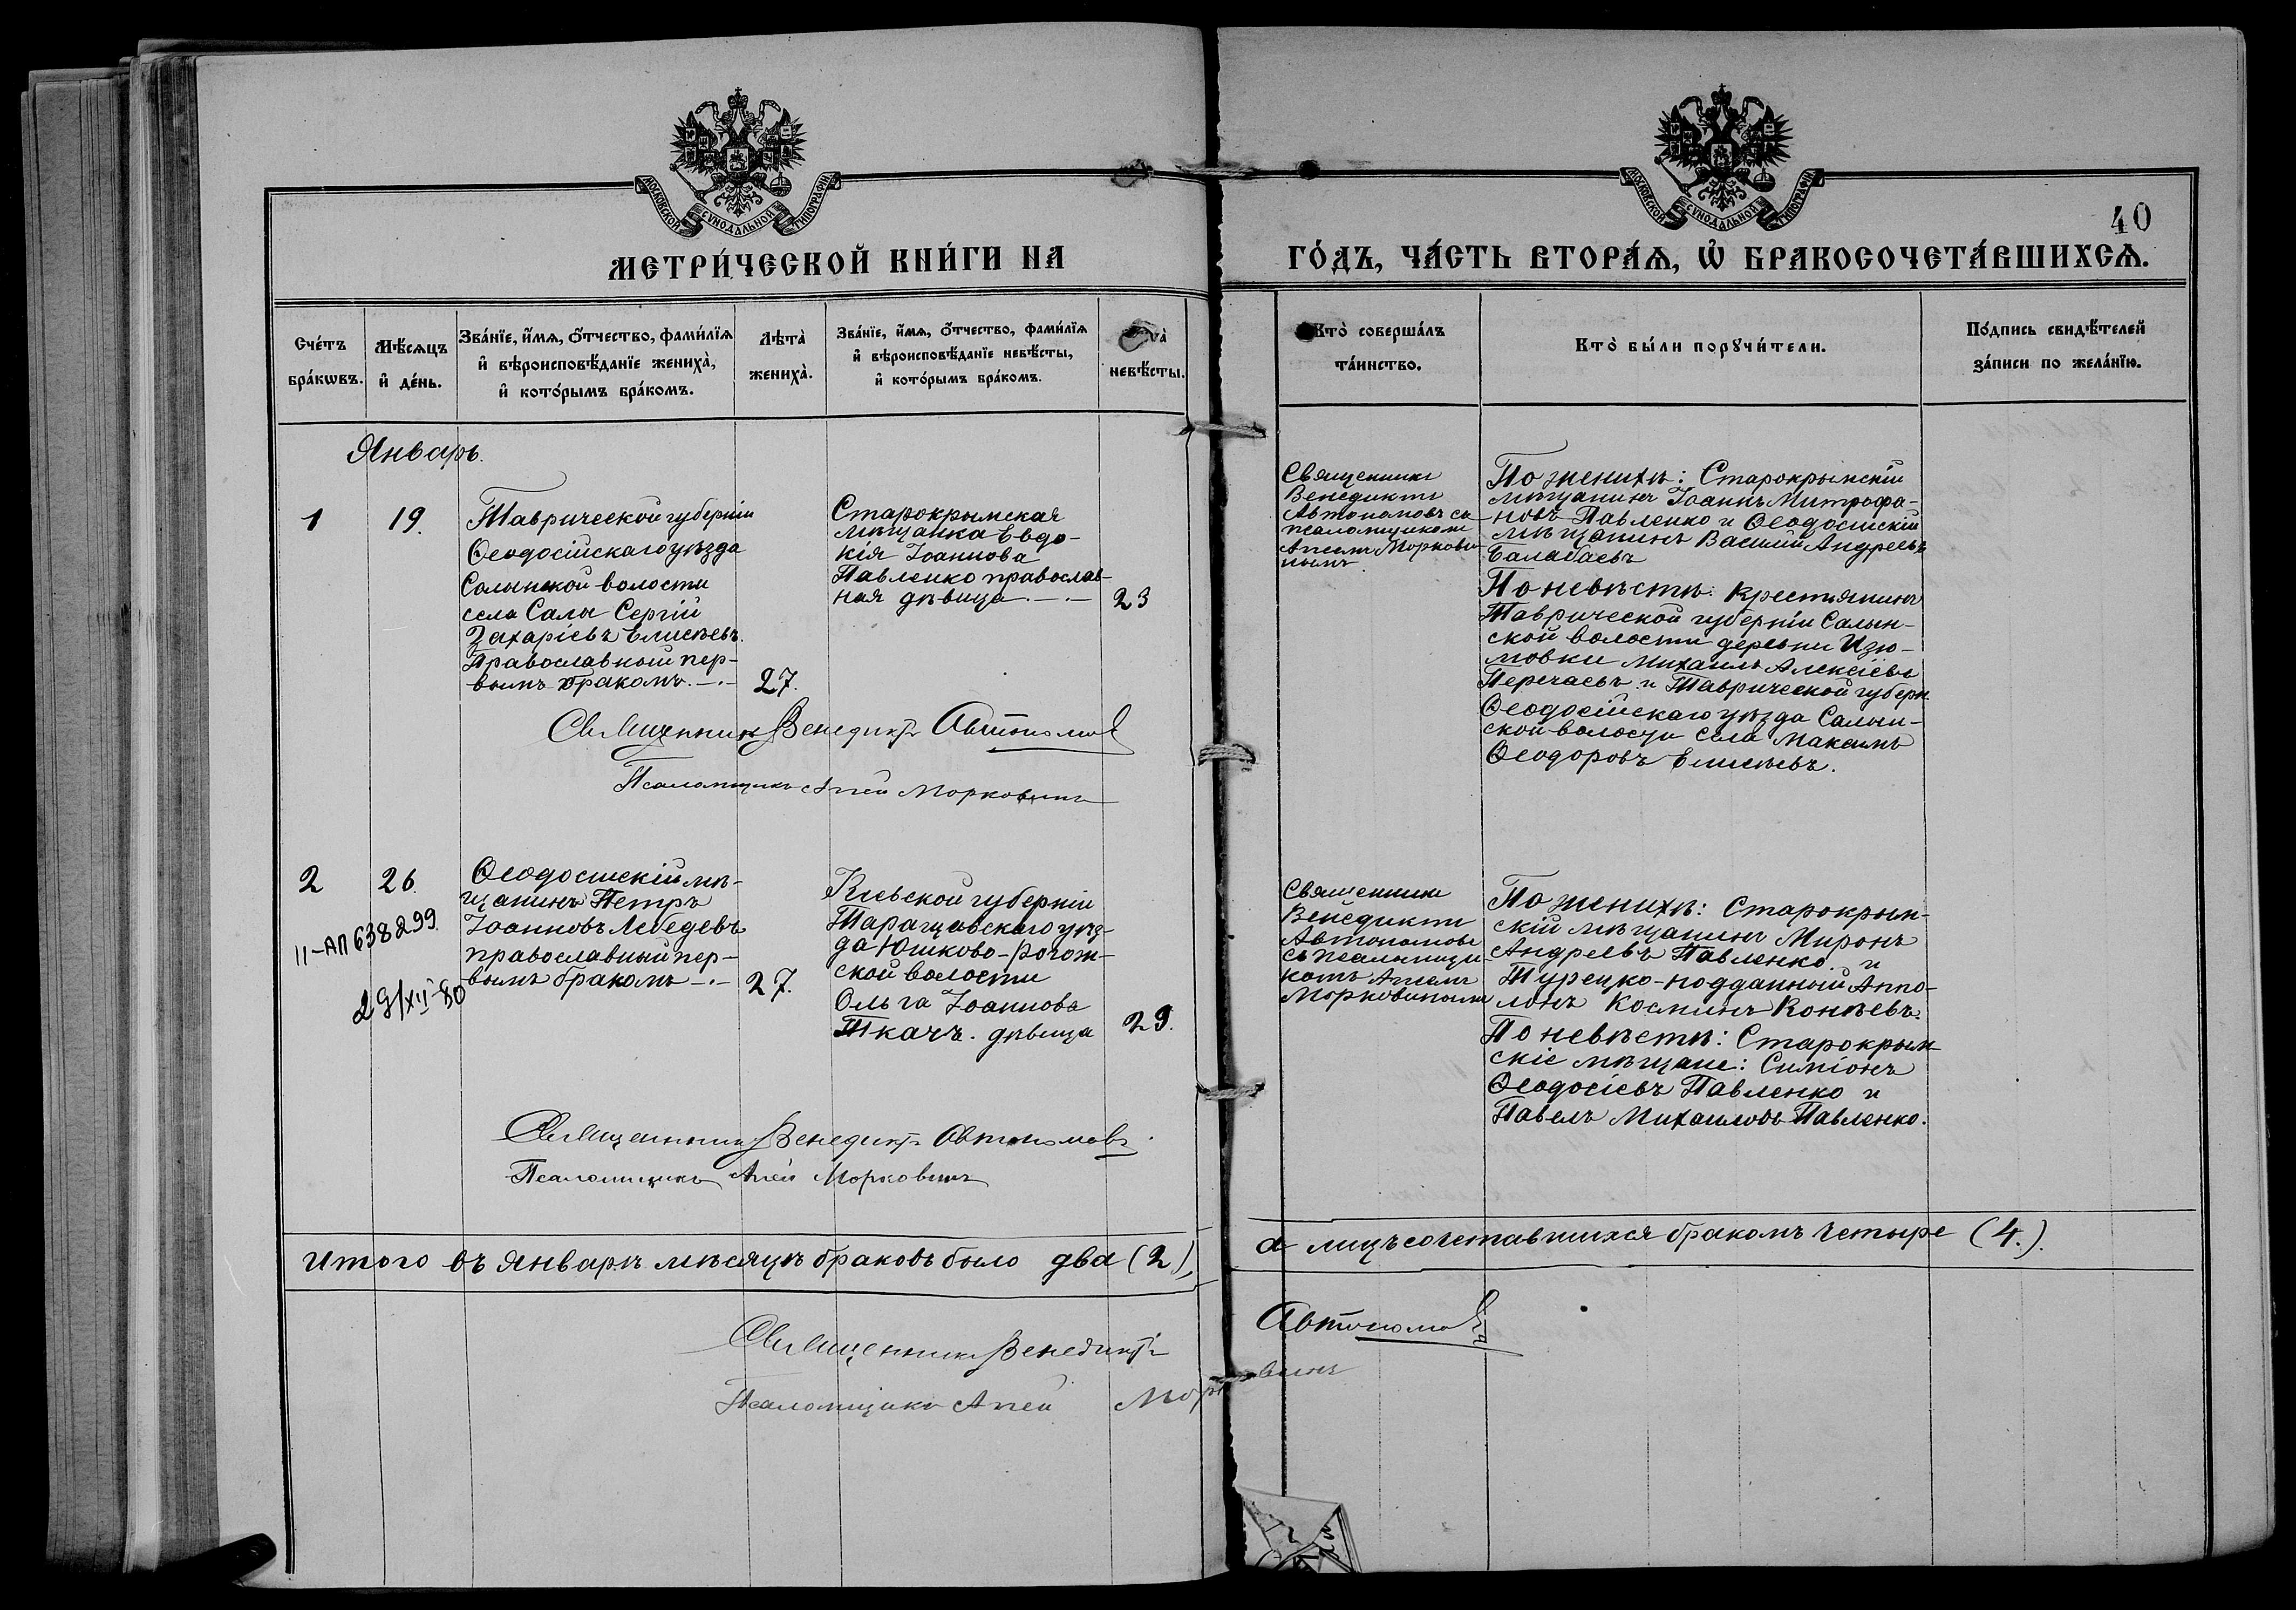 МОСКОВСКОЙ СУНОДАЛЬНОЙ ТИПОГРАФІИ
МОСКОВСКОЙ СУНОДАЛЬНОЙ ТИПОГРАФІИ
40
МЕТРИ́ЧЕСКОЙ КНИ́ГИ НА
ГО́ДЪ, ЧА́СТЬ ВТОРА́Ѧ, Ѡ҆ БРАКОСОЧЕТА́ВШИХСѦ.
Сче́тъ
бра́кѡвъ.
Мѣ́сѧцъ
и҆ де́нь.
Зва́нїе, и҆́мѧ, ѻ҆́тчество, фами́лїѧ
и҆ вѣроисповѣ́данїе жениха̀,
и҆ кото́рымъ бра́комъ.
Лѣта̀
жениха̀.
Зва́нїе, и҆́мѧ, ѻ҆́тчество, фами́лїѧ
и҆ вѣроисповѣ́данїе невѣ́сты,
и҆ кото́рымъ бра́комъ.
невѣ́сты.
Кто̀ соверша́лъ
та́инство.
Кто̀ бы́ли порꙋчи́тели.
По́дпись свидѣ́телей
за́писи по жела́нїю.
Январь.
1
19.
Таврической губерніи
Ѳеодосійскаго уѣзда
Салынской волости
села Салы Сергій
Захаріевъ Елисѣевъ.
Православный пер-
вымъ бракомъ. —.—
27.
Старокрымская
мѣщанка Евдо-
кія Іоаннова
Павленко православ-
ная дѣвица. —.—
23
Священникъ
Венедиктъ
Автономовъ съ
псаломщикомъ
Моркови-
нымъ
По женихѣ: Старокрымскій
мѣщанинъ Іоаннъ Митрофа-
новъ Павленко и Ѳеодосійскій
мѣщанинъ Василій Андреевъ
Балабаевъ
По невѣстѣ: Крестьянинъ
Таврической губерніи Салын-
ской волости деревни Изю-
мовки Михаилъ Алексіевъ
Перечаевъ и Таврической губерн.
Ѳеодосійскаго уѣзда Салын-
ской волости села Максимъ
Ѳеодоровъ Елисѣевъ.
Священникъ Венедиктъ Автономов
Псаломщикъ Морковинъ
2
26.
II-АП 638299
29/XII-80
Ѳеодосійскій мѣ-
щанинъ Петръ
Іоанновъ Лебедевъ
православный пер-
вымъ бракомъ —.—
27.
Кіевской губерніи
Таращавскаго уѣз-
да Юшково-Рогож-
ской волости
Ольга Іоаннова
Ткачъ. дѣвица
29.
Священникъ
Венедиктъ
Автономовъ
съ псаломщи-
комъ
Морковинымъ
По женихѣ: Старокрым-
скій мѣщанинъ Миронъ
Андреевъ Павленко и
Турецко-подданный Аппо-
лонъ Косминъ Конѣевъ.
По невѣстѣ: Старокрым-
скіе мѣщане: Симіонъ
Ѳеодосіевъ Павленко и
Павелъ Михаиловъ Павленко.
Священникъ Венедиктъ Автономовъ.
Псаломщикъ Морковинъ
Итого въ Январѣ мѣсяцѣ браковъ было два (2),
а лицъ сочетавшихся бракомъ четыре (4.).
Священникъ Венедиктъ
Автономовъ
Псаломщикъ Морковинъ